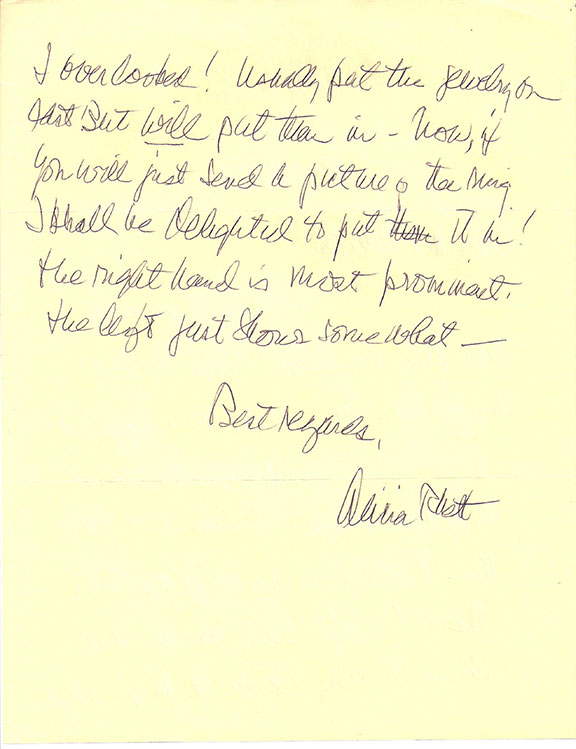 I overlooked! Usually put the jewelry on
last But will put them in - Now, if
you will just send a picture of the ring
I shall be Delighted to put them it in!
the right hand is most prominent.
the left just shows somewhat —
Best regards,
Alicia Rhett